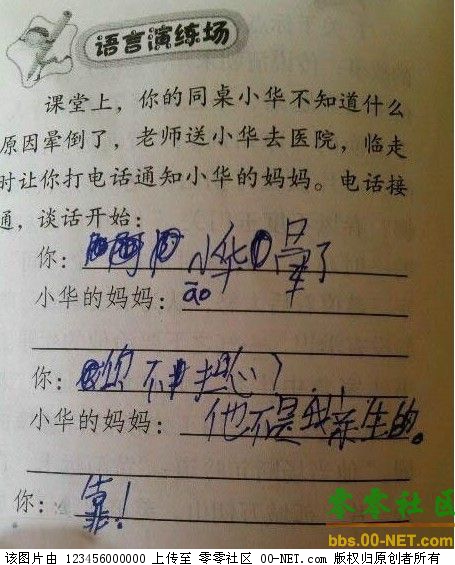 语言演练场
课堂上，你的同桌小华不知道什么
原因晕倒了，老师送小华去医院，临走
时让你打电话通知小华的妈妈。电话接
通，谈话开始：
你：小华晕了
小华的妈妈：āo
你：你不担心？
小华的妈妈：他不是我亲生的。
你：靠！
零零社区
bbs.00-NET.com
该图片由 123456000000 上传至 零零社区 00-NET.com 版权归原创者所有